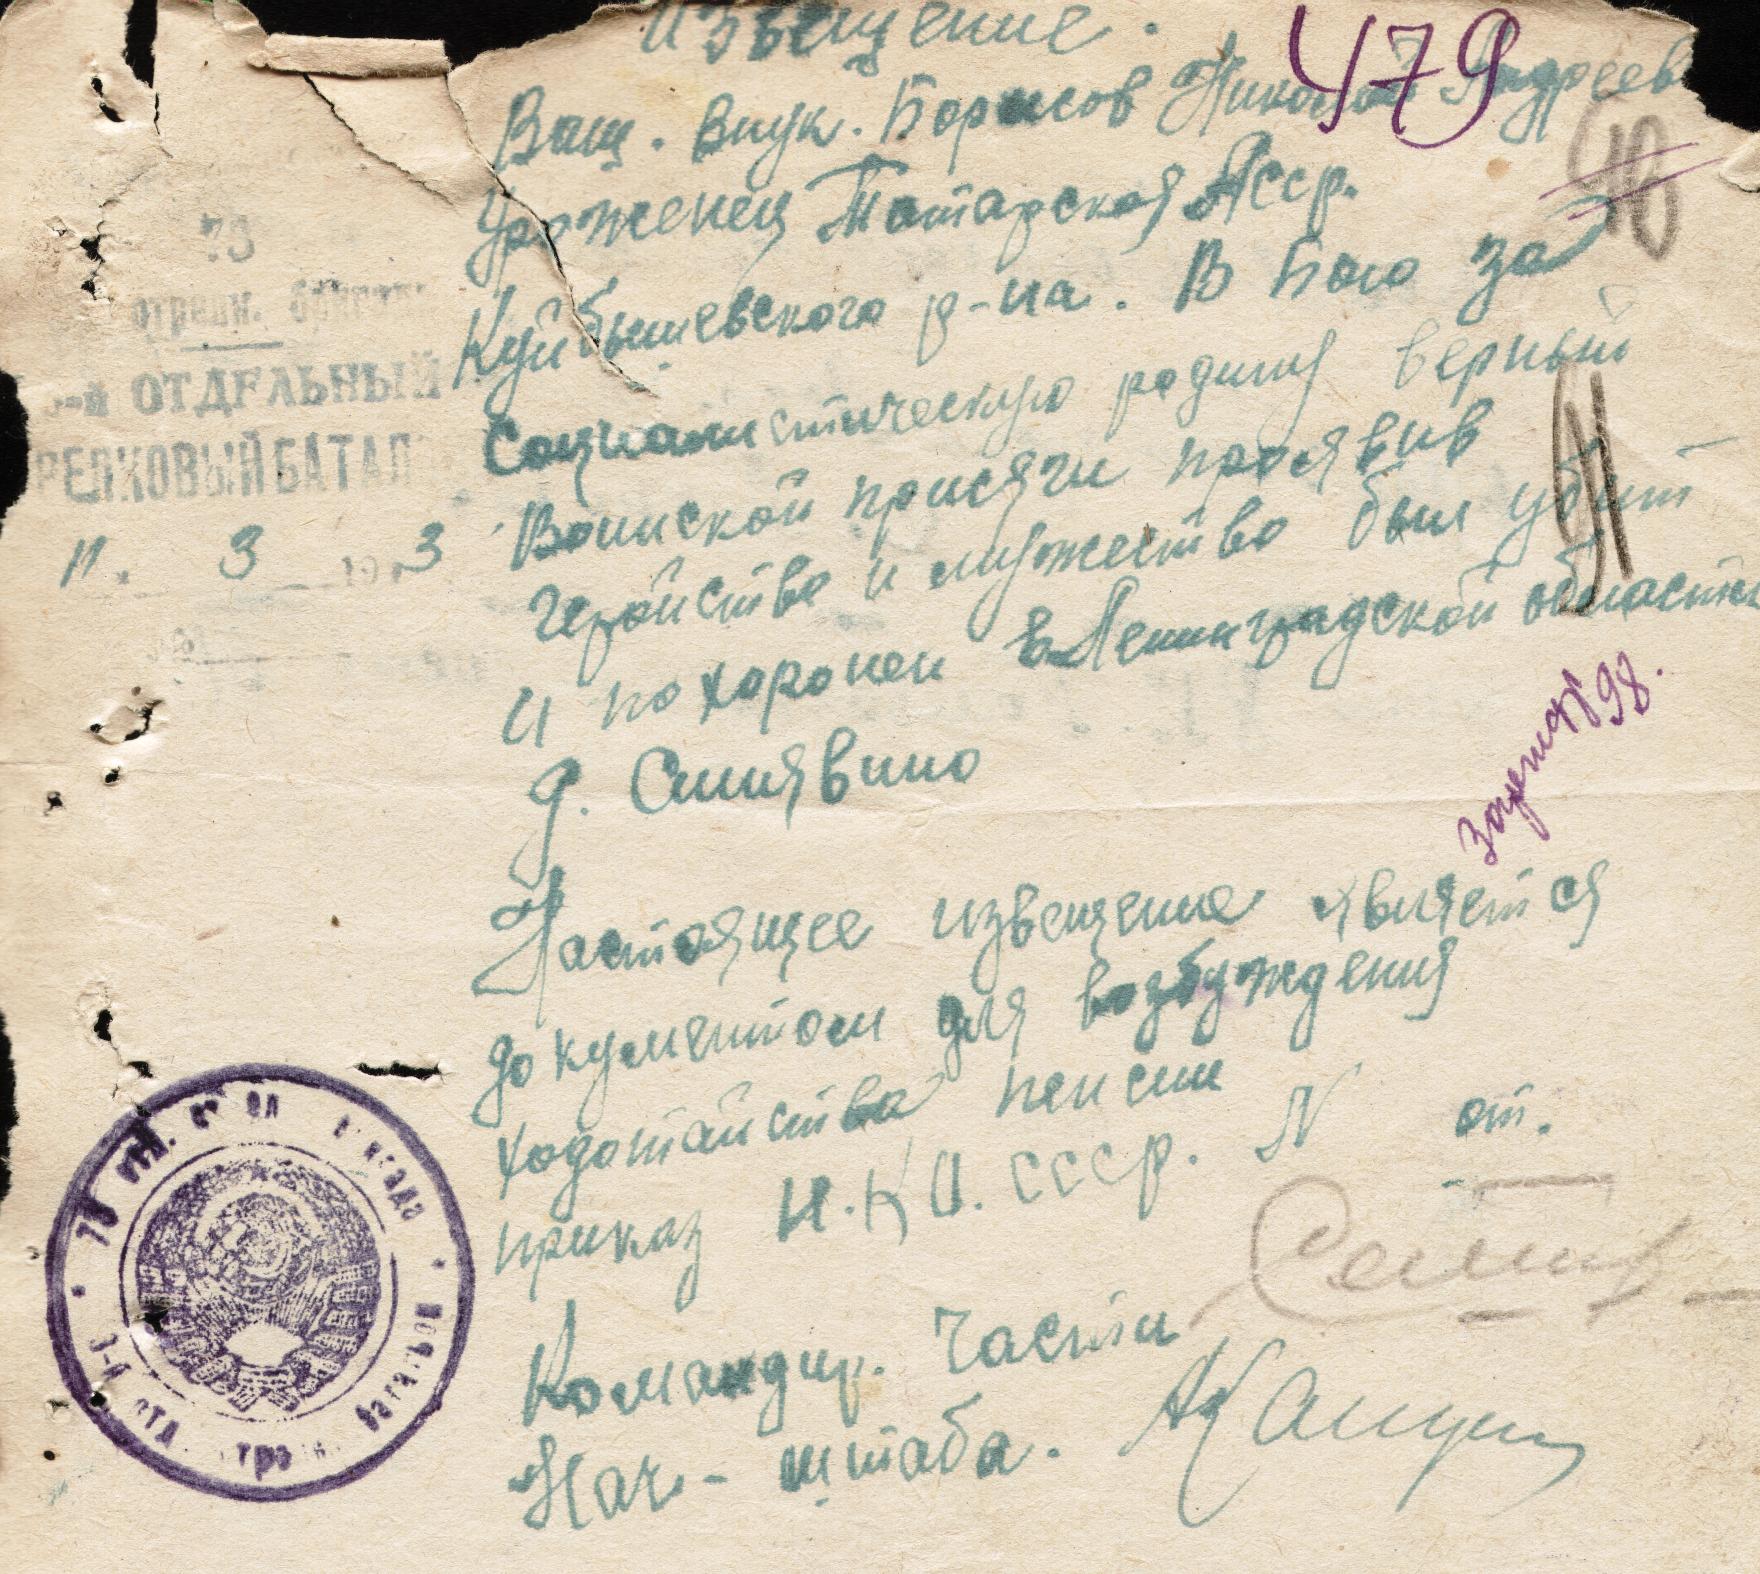 Извещение.
479
Ваш. Внук. Борисов Николай Андреев
Уроженец Татарской Асср.
Куйбышевского р-на. В Бою за
Социалистическую родину верный
Воинской присяги проявив
Геройство и мужество был убит
и похоронен в Ленинградской области
д. Синявино
73
отдельный
-й ОТДЕЛЬНЫЙ
РЕЛКОВЫЙ БАТАЛ
11. 3 19 3
98.
Настоящее извещение является
документом для возбуждения
ходотайства пенсии
приказ Н.К О. СССР. N от.
Командир. Части
Нач - штаба.